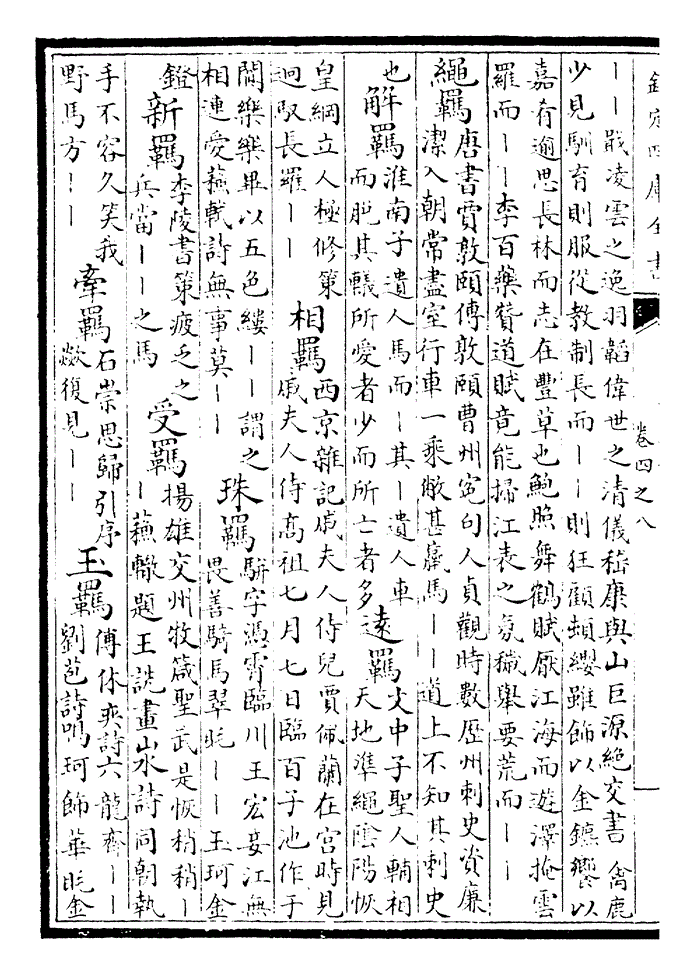 欽定四庫全書
卷四之八
一一戢凌雲之逸羽韜偉世之清儀嵇康與山巨源絶交書禽鹿
少見馴育則服從教制長而一一則狂顧頓纓雖飾以金鑣饗以
嘉肴逾思長林而志在豐草也鮑照舞鶴賦厭江海而遊澤掩雲
羅而一一李百藥贊道賦竟能掃江表之氛穢舉要荒而一一
繩羈唐書賈敦頤傳敦頤曹州寃句人貞觀時數歷州刺史資廉
潔入朝常盡室行車一乘敝甚羸馬一一道上不知其刺史
也解羈淮南子遺人馬而一其一遺人車
而脱其轙所愛者少而所亡者多遠羈文中子聖人輔相
天地準繩陰陽恢
皇綱立人極修策
迥馭長羅一一相羈西京雜記戚夫人侍兒賈佩蘭在宫時見
戚夫人侍高祖七月七日臨百子池作于
闐樂樂畢以五色縷一一謂之
相連受蘇軾詩無事莫一一珠羈駢字憑霄臨川王宏妾江無
畏善騎馬翠眊一一玉珂金
鐙新羈李陵書策疲乏之
兵當一一之馬受羈揚雄交州牧箴聖武是恢稍稍一
一蘇轍題王詵畫山水詩同朝執
手不容久笑我
野馬方一一牽羈石崇思歸引序
歘復見一一玉羈傅休奕詩六龍齊一一
劉苞詩鳴珂飾華眊金